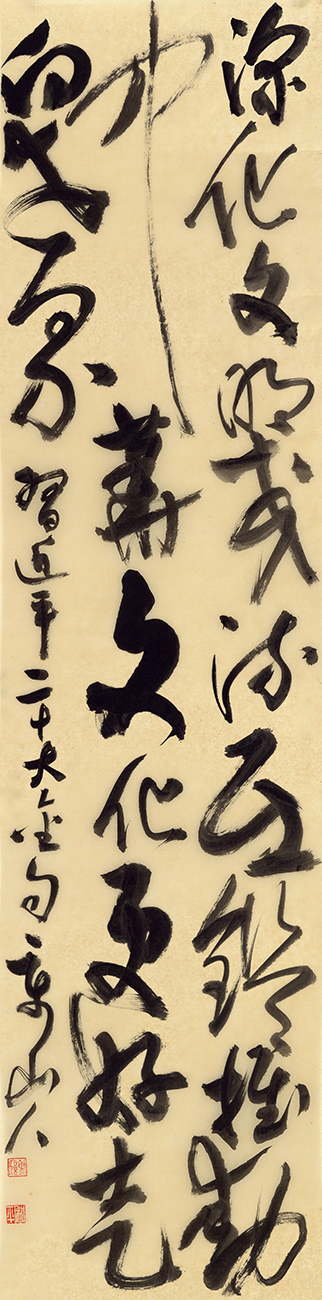 深化文明交流互鉴推動
中華文化更好走
向世界
習近平二十大金句 山人